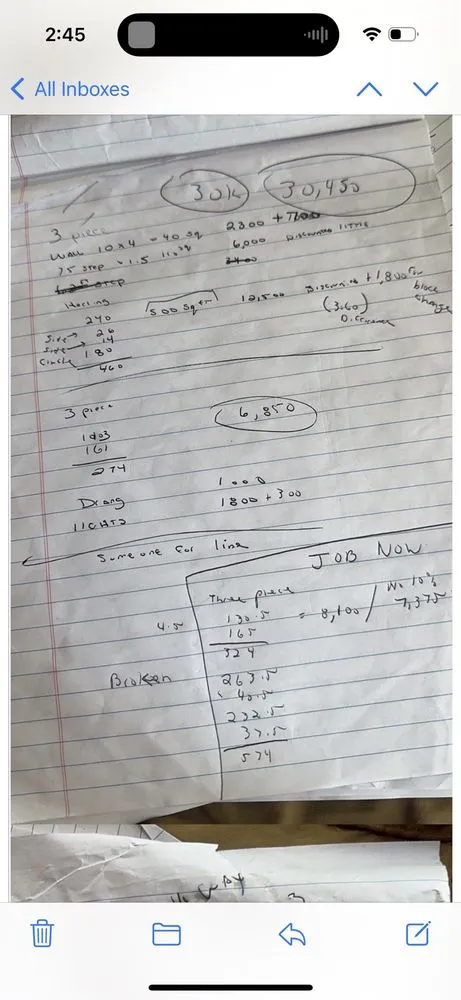 2:45
All Inboxes
30k 30,450
3 piece
Wall 10 x 4 = 40 sq 2300 +
75 step 6,000 Discounted little
240 500 sq 12,500 Discounted + 1,800 for
Side → 26 (3.60) block
Side → 14 Difference change
Circle 180
460
3 piece 6,850
161
274
1000
LIGHTS 1800 + 300
Someone for line
JOB NOW
Three piece
No 10%
4.5 130.5 = 8,100 / 7,375
165
324
Broken 263.5
40.5
232.5
37.5
574